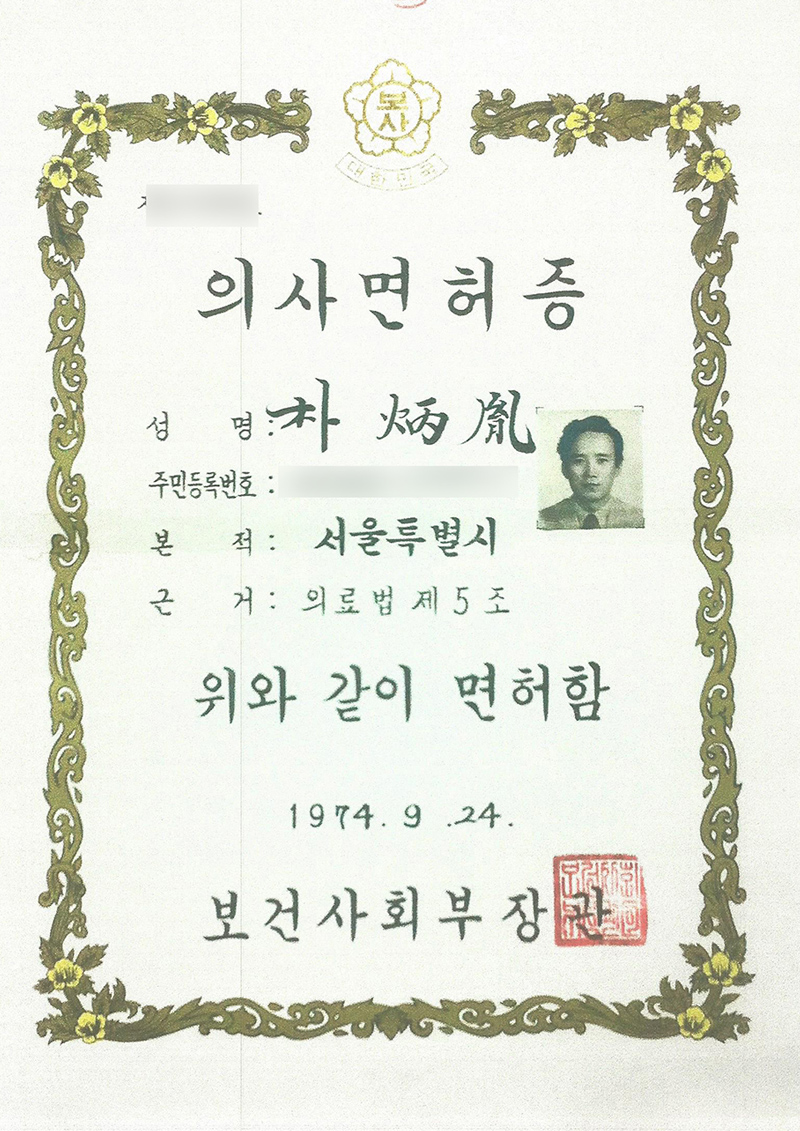 보사
대한민국
의사면허증
성 명: 朴 炳 胤
주민등록번호 :
본 적 : 서울특별시
근 거 : 의료법 제 5 조
위와 같이 면허함
1974. 9 .24.
보건사회부장관